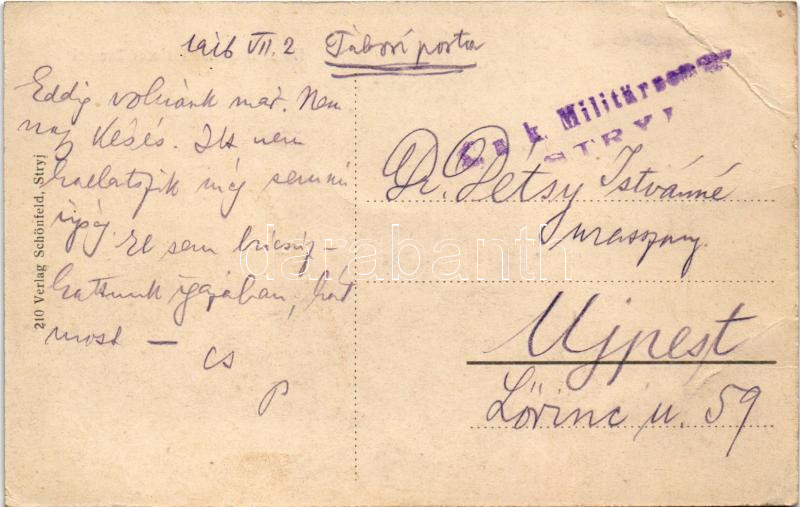 1916 VII. 2 Tábori posta
K. u. k. Militärzensur
STRYJ
Eddig volnánk már. Nem
nagy késés. Itt nem
hallatszik még semmi
újság. El sem búcsúz-
hattunk igazában, hát
most — cs
P
Dr. Pétsy Istvánné
Úrasszony.
Ujpest
Lőrinc u. 59
210 Verlag Schönfeld, Stryj
darabanth